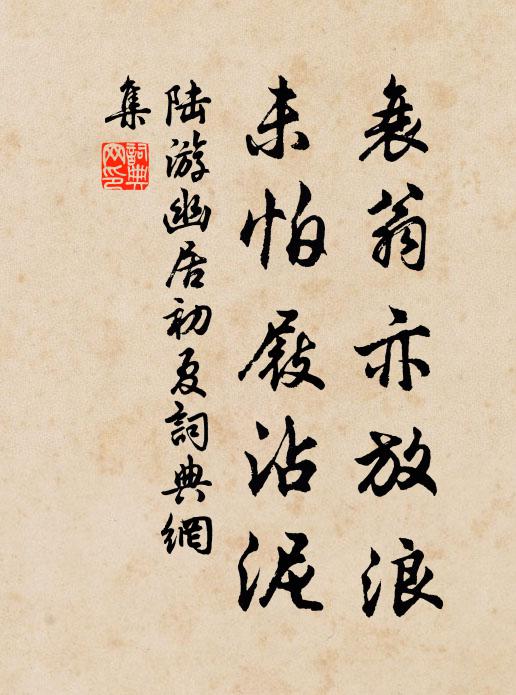 衰翁亦放浪
未怕屐沾泥
陆游幽居初夏詞典網
集
詞典網印